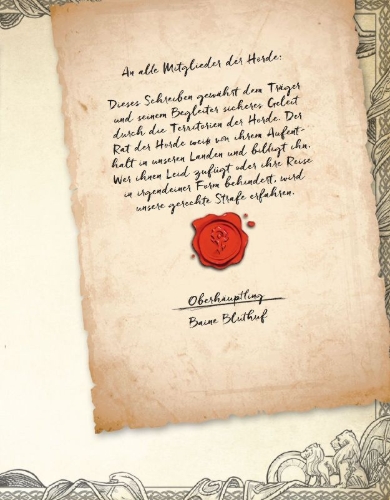 An alle Mitglieder der Horde:
Dieses Schreiben gewährt dem Träger
und seinem Begleiter sicheres Geleit
durch die Territorien der Horde. Der
Rat der Horde weiß von ihrem Aufent-
halt in unseren Landen und billigt ihn.
Wer ihnen Leid zufügt oder ihre Reise
in irgendeiner Form behindert, wird
unsere gerechte Strafe erfahren.
Oberhäuptling
Baine Bluthuf